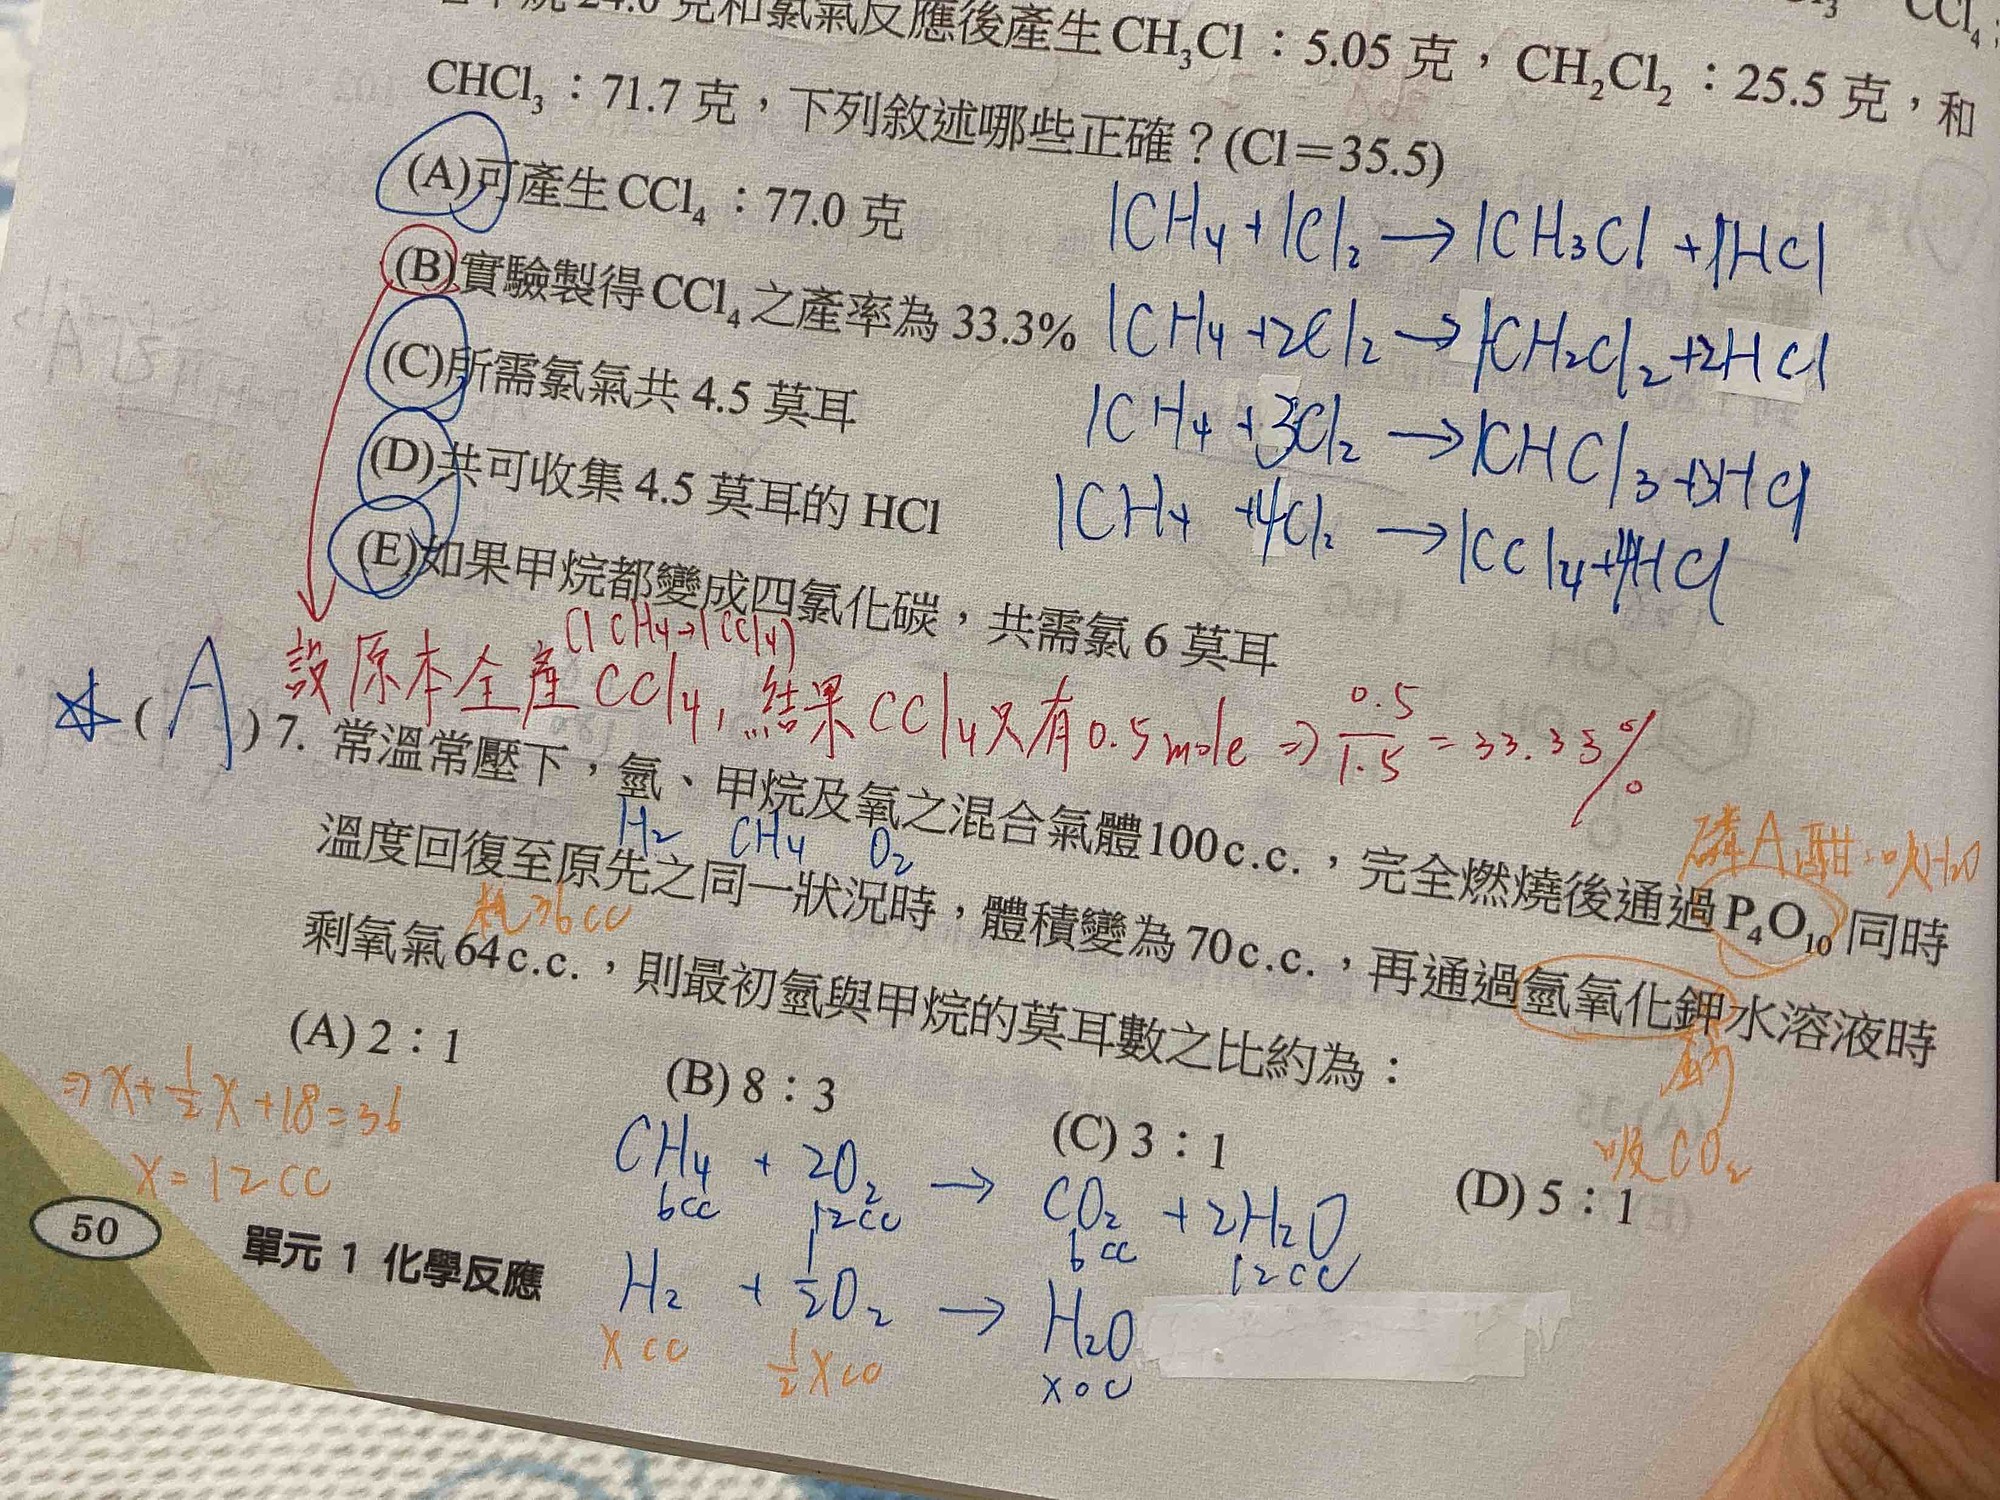 24.0 克和氯氣反應後產生 CH₃Cl：5.05 克，CH₂Cl₂：25.5 克，和
CCl₄；
CHCl₃：71.7 克，下列敘述哪些正確？(Cl＝35.5)
(A)可產生 CCl₄：77.0 克
(B)實驗製得 CCl₄ 之產率為 33.3%
(C)所需氯氣共 4.5 莫耳
(D)共可收集 4.5 莫耳的 HCl
(E)如果甲烷都變成四氯化碳，共需氯 6 莫耳
1CH₄ + 1Cl₂ → 1CH₃Cl + 1HCl
1CH₄ + 2Cl₂ → 1CH₂Cl₂ + 2HCl
1CH₄ + 3Cl₂ → 1CHCl₃ + 3HCl
1CH₄ + 4Cl₂ → 1CCl₄ + 4HCl
(1CH₄→1CCl₄)
設原本全產CCl₄，結果CCl₄只有0.5mole ⇒ 0.5/1.5 = 33.33%
(A) 7. 常溫常壓下，氫、甲烷及氧之混合氣體100c.c.，完全燃燒後通過P₄O₁₀同時
H₂ CH₄ O₂
吸H₂O
溫度回復至原先之同一狀況時，體積變為70c.c.，再通過氫氧化鉀水溶液時
耗36cc
剩氧氣64c.c.，則最初氫與甲烷的莫耳數之比約為：
吸CO₂
(A) 2：1
(B) 8：3
(C) 3：1
(D) 5：1
⇒ x + 1/2 x + 18 = 36
x = 12cc
CH₄ + 2O₂ → CO₂ + 2H₂O
6cc 12cc 6cc 12cc
H₂ + 1/2 O₂ → H₂O
xcc 1/2 xcc xcc
50 單元 1 化學反應